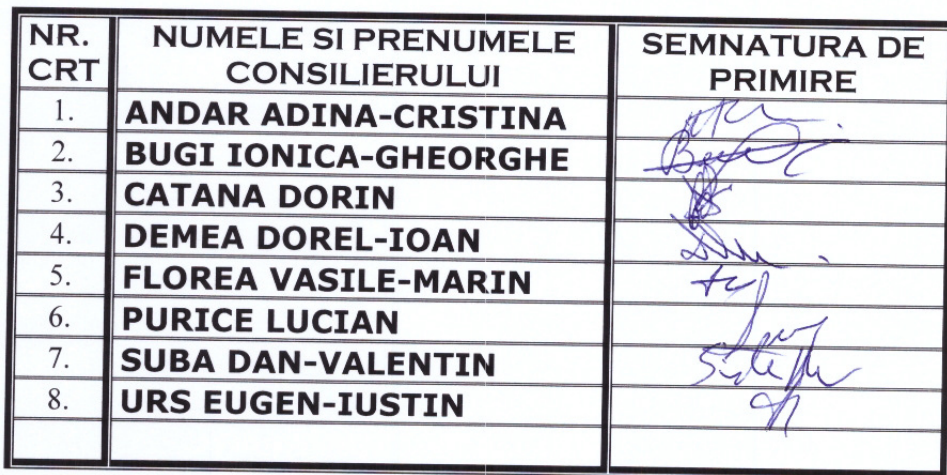 NR. CRT NUMELE SI PRENUMELE CONSILIERULUI SEMNATURA DE PRIMIRE
1. ANDAR ADINA-CRISTINA
2. BUGI IONICA-GHEORGHE
3. CATANA DORIN
4. DEMEA DOREL-IOAN
5. FLOREA VASILE-MARIN
6. PURICE LUCIAN
7. SUBA DAN-VALENTIN
8. URS EUGEN-IUSTIN